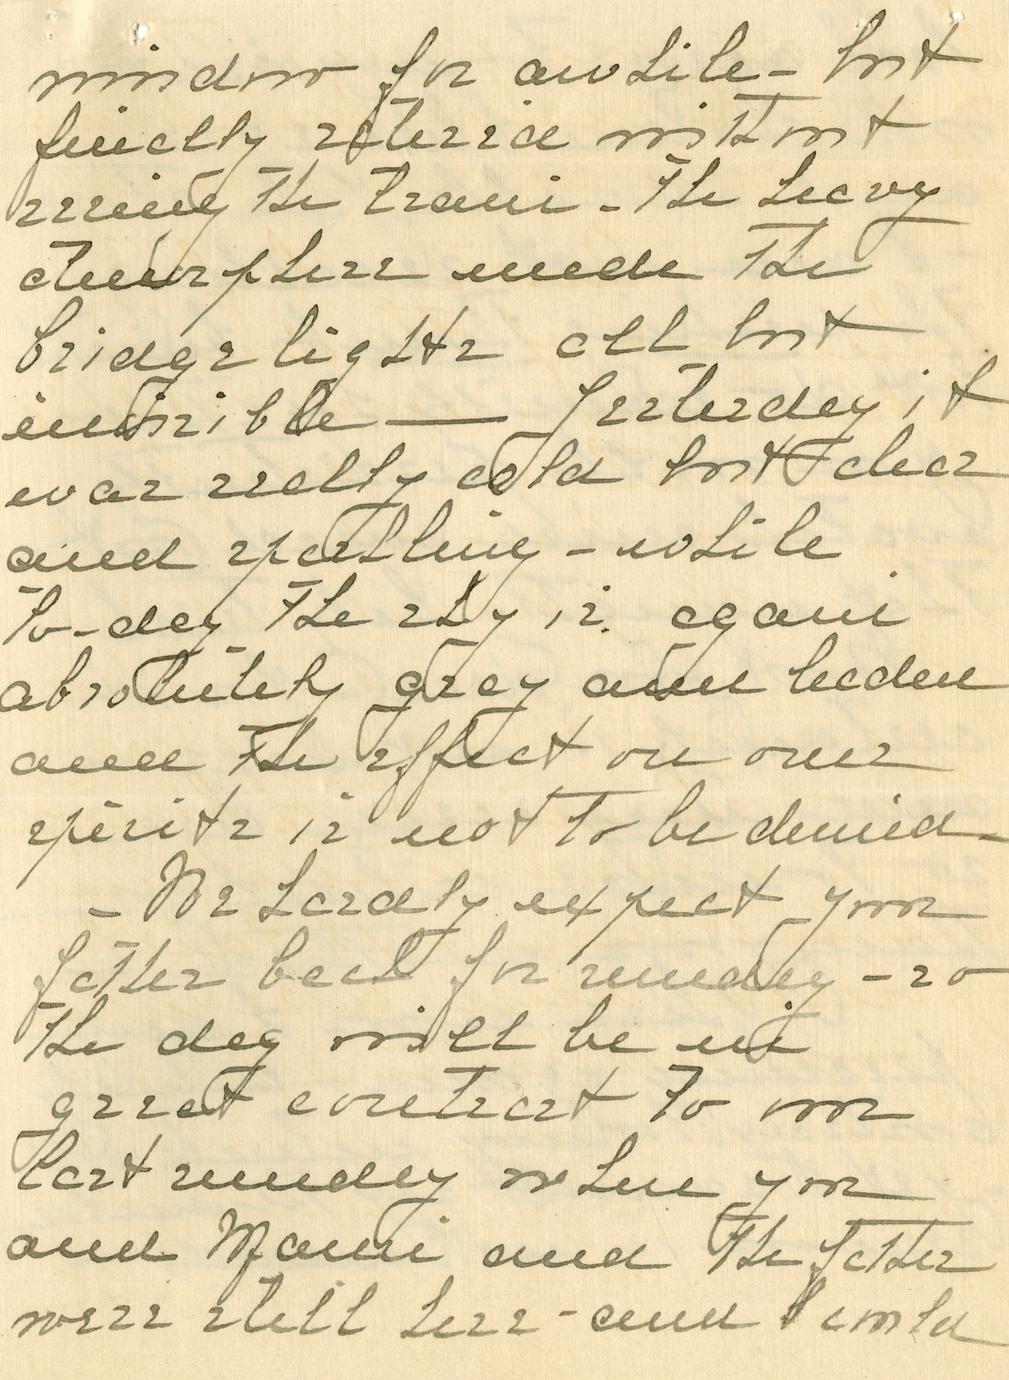 window for awhile - but
finally retired without
seeing the train - the heavy
atmosphere made the
bridge lights all but
invisible — Yesterday it
was really cold but clear
and sparkling - while
to-day the sky is again
absolutely gray and leaden
and the effect on our
spirits is not to be denied -
- We hardly expect your
father back for sunday - so
the day will be in
great contrast to our
last sunday when you
and Mami and the father
were still here - and I could